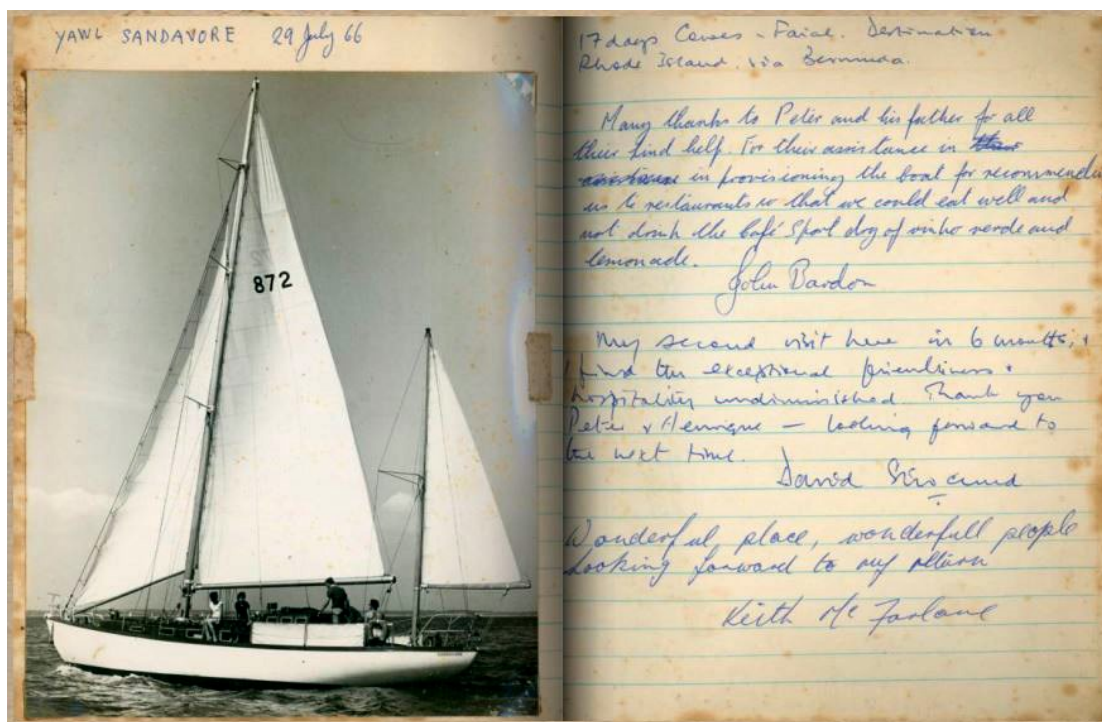 YAWL SANDAVORE 29 July 66
872
17 days Cowes - Faial. Destination
Rhode Island. via Bermuda.
Many thanks to Peter and his father for all
their kind help. For their assistance in their
assistance in provisioning the boat for recommending
us to restaurants so that we could eat well and
not drink the Café Sport dog of vinho verde and
lemonade.
John Bardon
My second visit here in 6 months, +
I find the exceptional friendliness +
hospitality undiminished. Thank you
Peter & Henrique – looking forward to
the next time.
David
Wonderful place, wonderfull people
Looking forward to my return
Keith McFarlane